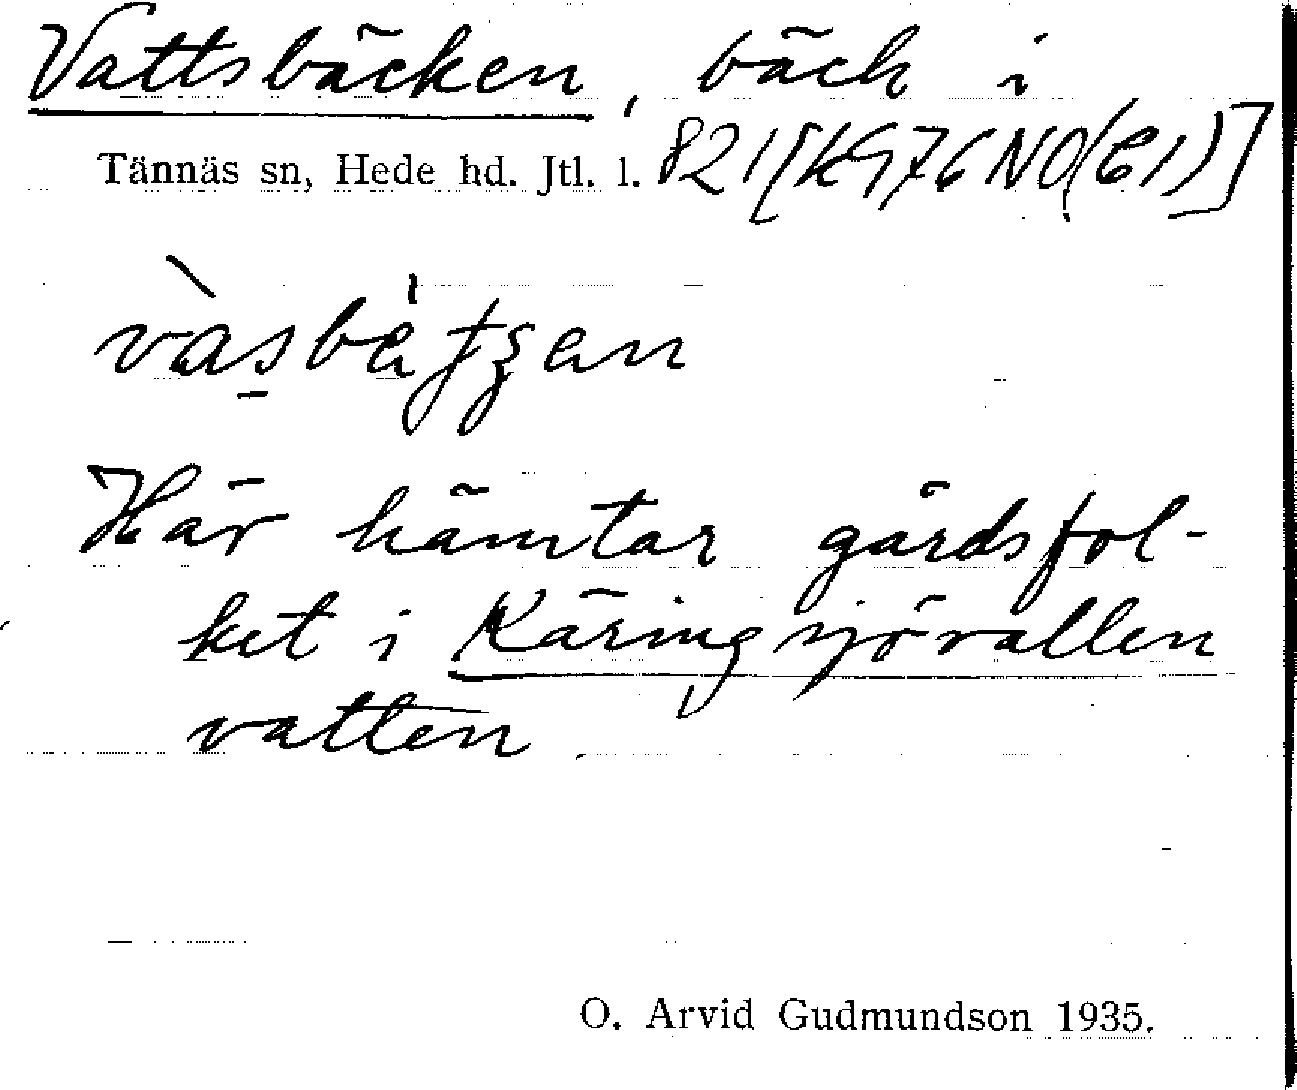 Vattsbäcken, bäck i
Tännäs sn, Hede hd. Jtl. l. 821 [KG76NO(C1)]
Här hämtar gårdsfol-
ket i Käringsjövallen
vatten
O. Arvid Gudmundson 1935.